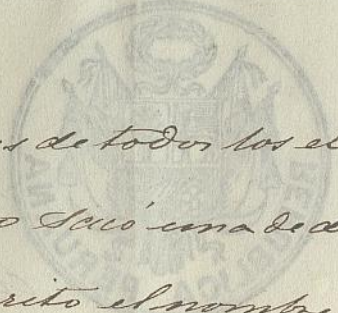 s de todos los el
o sacó una de d
rito el nombre